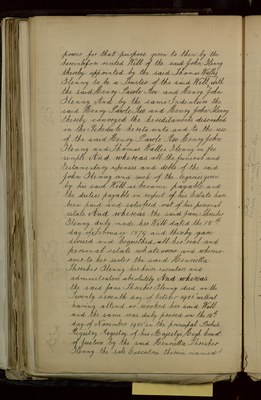 power for that purpose given to them by the
hereinbefore recited Will of the said John Henry
thereby appointed by the said Thomas Walter
to be a Trustee of the said Will with
the said Henry and Henry John
And by the same Indenture the
said Henry and Henry John
thereby conveyed the hereditaments described
in the Schedule hereto unto and to the use
of the said Henry Henry John
and Thomas Walter in fee
simple And whereas all the funeral and
testamentary expenses and debts of the said
John and such of the legacies given
by his said Will as became payable and
the duties payable in respect of his Estate have
been paid and satisfied out of his personal
estate And whereas the said Jane Thresher
duly made her Will dated the
day of February 1879 and thereby gave
devised and bequeathed all her real and
personal estate whatsoever and where-
soever to her sister the said Henrietta
Thresher her heirs executors and
administrators absolutely And whereas
the said Jane Thresher died on the
Twenty seventh day of October 1901 without
having altered or revoked her said Will
and the same was duly proved on the
day of November 1901 in the principal Probate
Registry of his Majesty's High Court
of Justice by the said Henrietta Thresher
the sole Executrix therein named